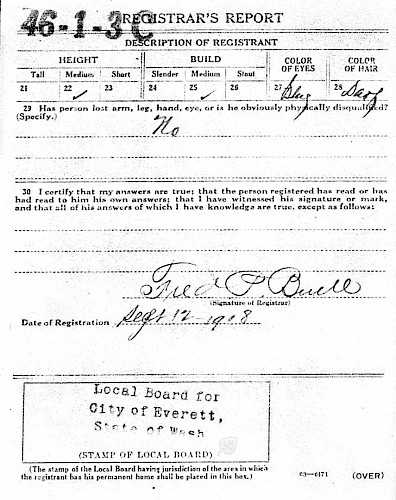 46-1-3 C REGISTRAR'S REPORT
DESCRIPTION OF REGISTRANT
HEIGHT BUILD COLOR OF EYES COLOR OF HAIR
Tall Medium Short Slender Medium Stout
21 22 ✓ 23 24 25 ✓ 26 27 Blue 28 Dark
29 Has person lost arm, leg, hand, eye, or is he obviously physically disqualified?
(Specify.)
No
30 I certify that my answers are true; that the person registered has read or has
had read to him his own answers; that I have witnessed his signature or mark,
and that all of his answers of which I have knowledge are true, except as follows:
Fred P. Buell
(Signature of Registrar)
Date of Registration Sept 12-1918
Local Board for
City of Everett,
State of Wash
(STAMP OF LOCAL BOARD)
(The stamp of the Local Board having jurisdiction of the area in which
the registrant has his permanent home shall be placed in this box.)
03—6171 (OVER)